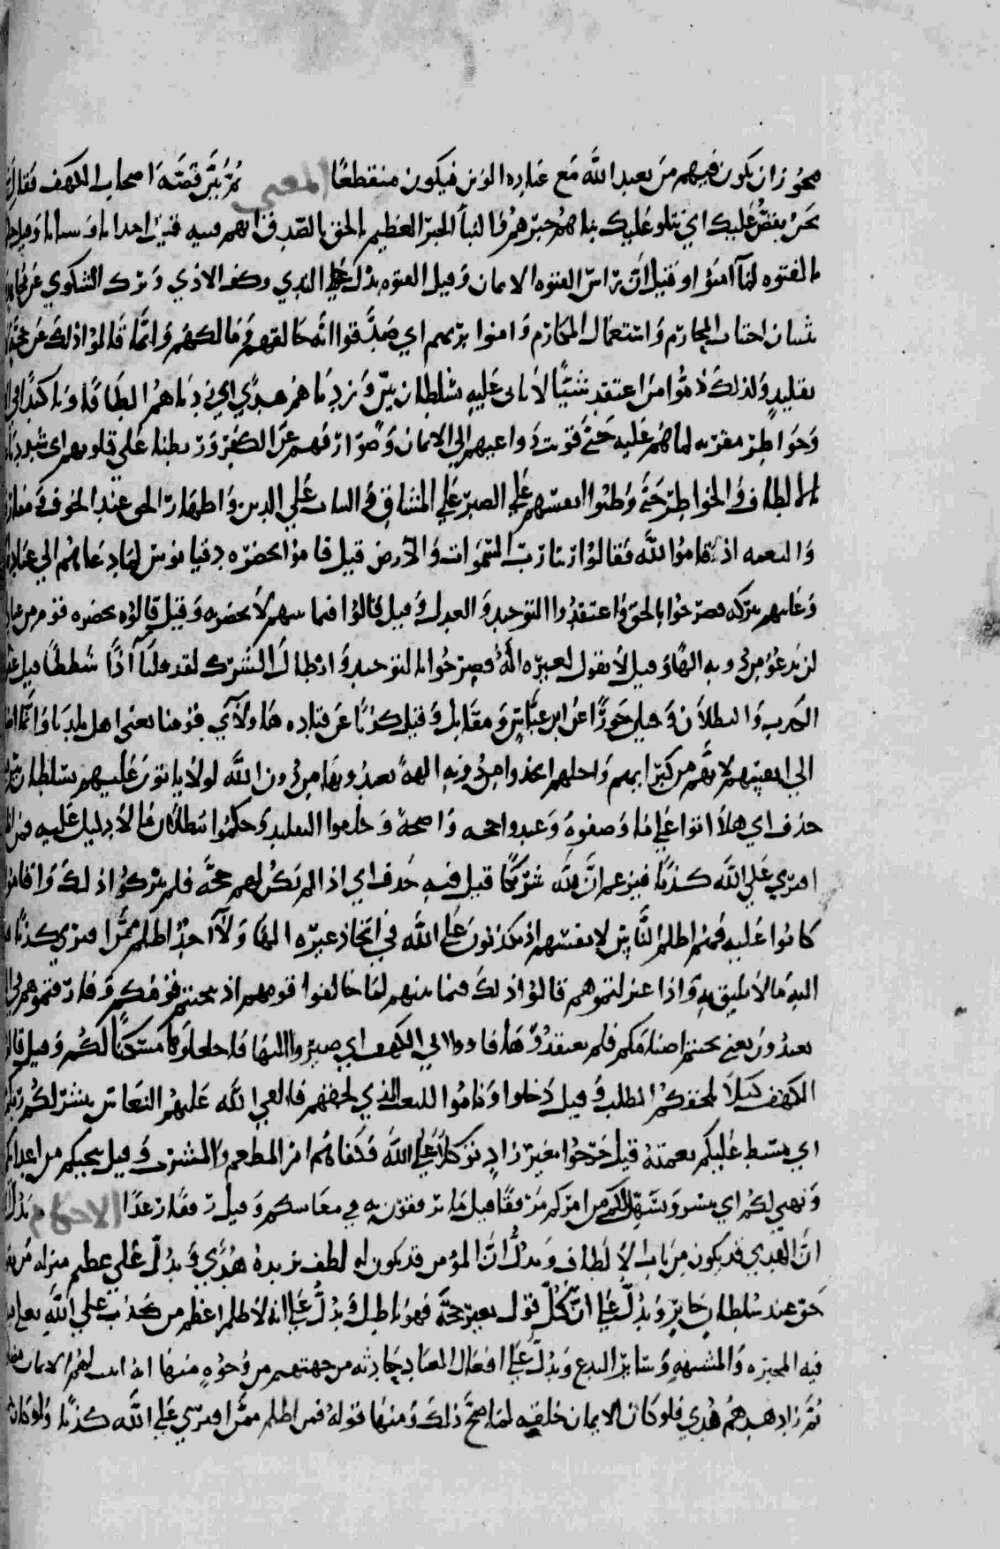 يجوز ان يكون فيهم من يعبد الله مع عباده الوثن فيكون منقطعا المعنى ثم بين قصة اصحاب الكهف فقال
نحن نقص عليك اي نتلو عليك نباهم خبرهم والنبأ الخبر العظيم بالحق بالصدق انهم فتية احداثا وشبابا وقيل
بالفتوه لما آمنوا وقيل لان راس الفتوه الايمان وقيل الفتوه بذل الندي وكف الاذي وترك الشكوي
اجتناب المحارم واستعمال المكارم وامنوا بربهم اي صدقوا انه خالقهم ومالكهم وانما قالوا ذلك عن حجة
تقليد ولذلك ذموا من اعتقد شيئا لا ياتى عليه بسلطان بين وزدناهم هدي اي زدناهم الطافا
وخواطر مقويه لما هم عليه حتى قويت دواعيهم الي الايمان وصوارفهم عن الكفر وربطنا على قلوبهم اي شددنا
بالالطاف والخواطر حتى وطنوا انفسهم علي الصبر علي المشاق والثبات علي الدين واظهار الحق عند الخوف
والنعمه اذ قاموا لله فقالوا ربنا رب السموات والارض قيل قاموا بحضره دقيانوس لما دعاهم الي
وعاتبهم بتركه فصرحوا بالحق واعتقدوا التوحيد والعدل وقيل قالوا فيما بينهم لا بحضرته وقيل قالوه بحضره قومهم
لن ندعو من دونه الها وقيل لا نقول لغيره اله فصرحوا بالتوحيد وابطال الشرك لقد قلنا اذا شططا قيل
الكذب والبطلان وقيل جورا عن ابن عباس ومقاتل وقيل كذبا عن قتاده هاولآي قومنا يعنى اهل بلدنا وانما
الي انفسهم لانهم من كبرايهم واجلهم اتخذوا من دونه الهة يعبدونها من دون الله لولا ياتون عليهم بسلطان
حذف اي هلا اتوا علي ما وصفوه وعبدوا حجه واضحة وخلعوا التقليد وحكموا ببطلان ما لا دليل عليه فمن
افترى علي الله كذبا فيزعم ان لله شريكا قيل فيه حذف اي اذا لم تكن لهم حجة فلم يتركوا ذلك واقاموا
كانوا عليه فهم اظلم الناس لانفسهم اذ يكذبون على الله في اتخاذ غيره الها ولا احد اظلم ممن افترى كذبا
اليه ما لا يليق به واذا اعتزلتموهم قالوا ذلك فيما بينهم لما خالفوا قومهم اذ نجيتم قومكم وفارقتموهم
يعبدون يعنى نجيتم اصنامكم فلم يعتقدوها فاووا الي الكهف اي صيروا اليها فاجعلوها مسكنا لكم وقيل
الكهف كيلا يلحقكم الطلب وقيل دخلوا وناموا للتعب الذي لحقهم فالقي الله عليهم النعاس ينشر لكم
اي يبسط عليكم نعمته قيل خرجوا بغير زاد توكلا علي الله فكفاهم امر المطعم والمشرب وقيل ينجيكم من
ويهيي لكم اي ييسر ويسهل لكم من امركم مرفقا قيل ما ترفقون به في معاشكم وقيل رفقا رغدا الاحكام تدل
ان الهدي قد يكون من باب الالطاف ويدل ان المومن قد يكون له لطف بزيادة هدي ويدل علي عظيم منزله من
حق عند سلطان جاير ويدل علي ان كل قول بغير حجة فهو باطل ويدل علي انه لا ظلم اعظم من كذب علي الله
فيه المجبره والمشبهه وساير البدع ويدل علي ان افعال العباد حادثه من جهتهم من وجوه منها انه اثبت لهم الايمان
ثم زادهم هدي فلو كان الايمان خلقه لما صح ذلك ومنها قوله فمن اظلم ممن افترى علي الله كذبا ولو كان